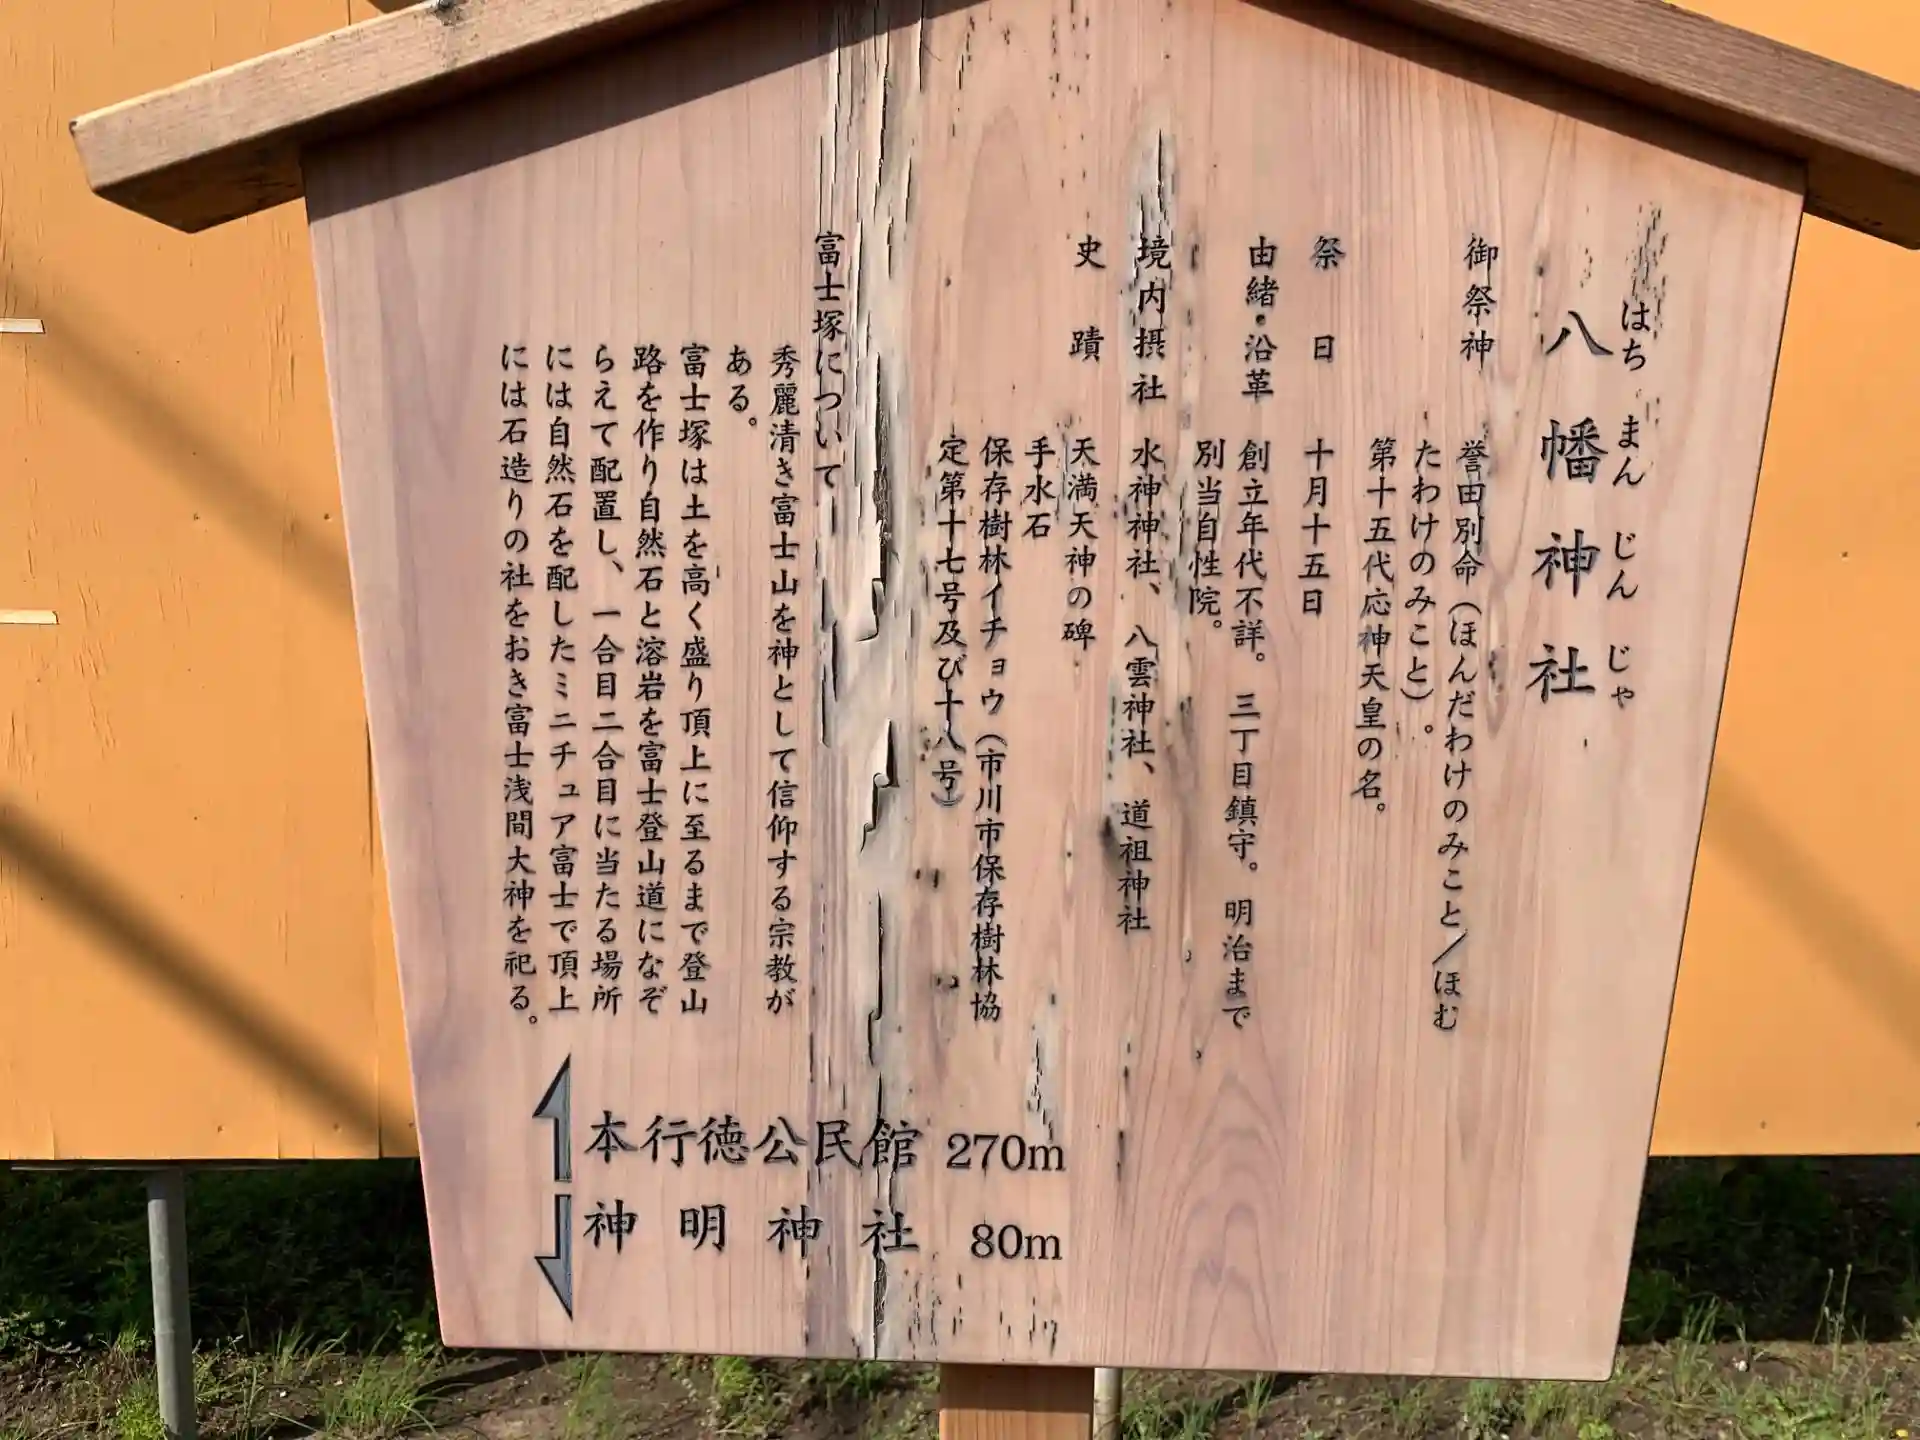 はちまんじんじゃ
八幡神社
御祭神
誉田別命（ほんだわけのみこと／ほむ
たわけのみこと）。
第十五代応神天皇の名。
祭日
十月十五日
由緒・沿革
創立年代不詳。三丁目鎮守。明治まで
別当自性院。
境内摂社
水神神社、八雲神社、道祖神社
史蹟
天満天神の碑
手水石
保存樹林イチョウ（市川市保存樹林協
定第十七号及び十八号）
富士塚について
秀麗清き富士山を神として信仰する宗教が
ある。
富士塚は土を高く盛り頂上に至るまで登山
路を作り自然石と溶岩を富士登山道になぞ
らえて配置し、一合目二合目に当たる場所
には自然石を配したミニチュア富士で頂上
には石造りの社をおき富士浅間大神を祀る。
本行徳公民館 270m
神明神社 80m